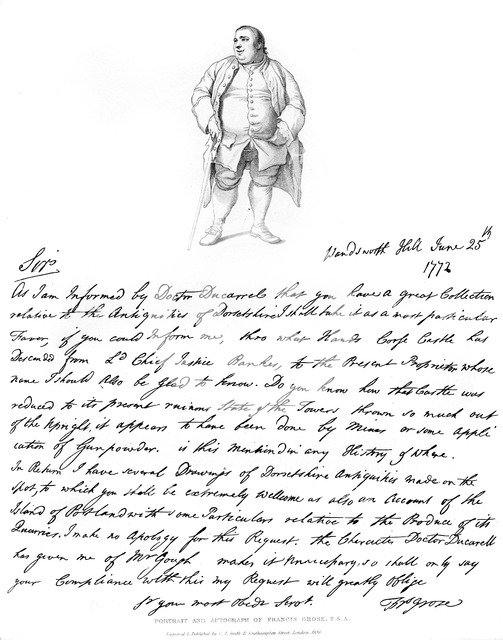 Wandsworth Hill June 25th
1772
Sir,
As I am Informed by Doctor Ducarrel that you have a great Collection
relative to the Antiquities of Dorsetshire I shall take it as a most particular
Favor, if you could Inform me, thro what Hands Corfe Castle has
Descended from Ld Chief Justice Bankes, to the Present Proprietor whose
name I should also be glad to know. Do you know how this Castle was
reduced to its present ruinous State, & the Towers thrown so much out
of the Upright, it appears to have been done by Mines or some appli
cation of Gunpowder. is this mentiond in any History & where.
In Return I have several Drawings of Dorsetshire Antiquities made on the
spot, to which you shall be extremely wellcome as also an Account of the
Island of Portland with some Particulars relative to the Produce of its
Quarries, I make no Apology for this Request. the Character Doctor Ducarell
has given me of Mr Gough makes it Unnecessary, so shall only say
your Compliance with this my Request will greatly Oblige
Sr your most Obedt Servt.
Fras Grose
PORTRAIT AND AUTOGRAPH OF FRANCIS GROSE, F.S.A.
Engraved & Published by C. J. Smith, Southampton Street, London